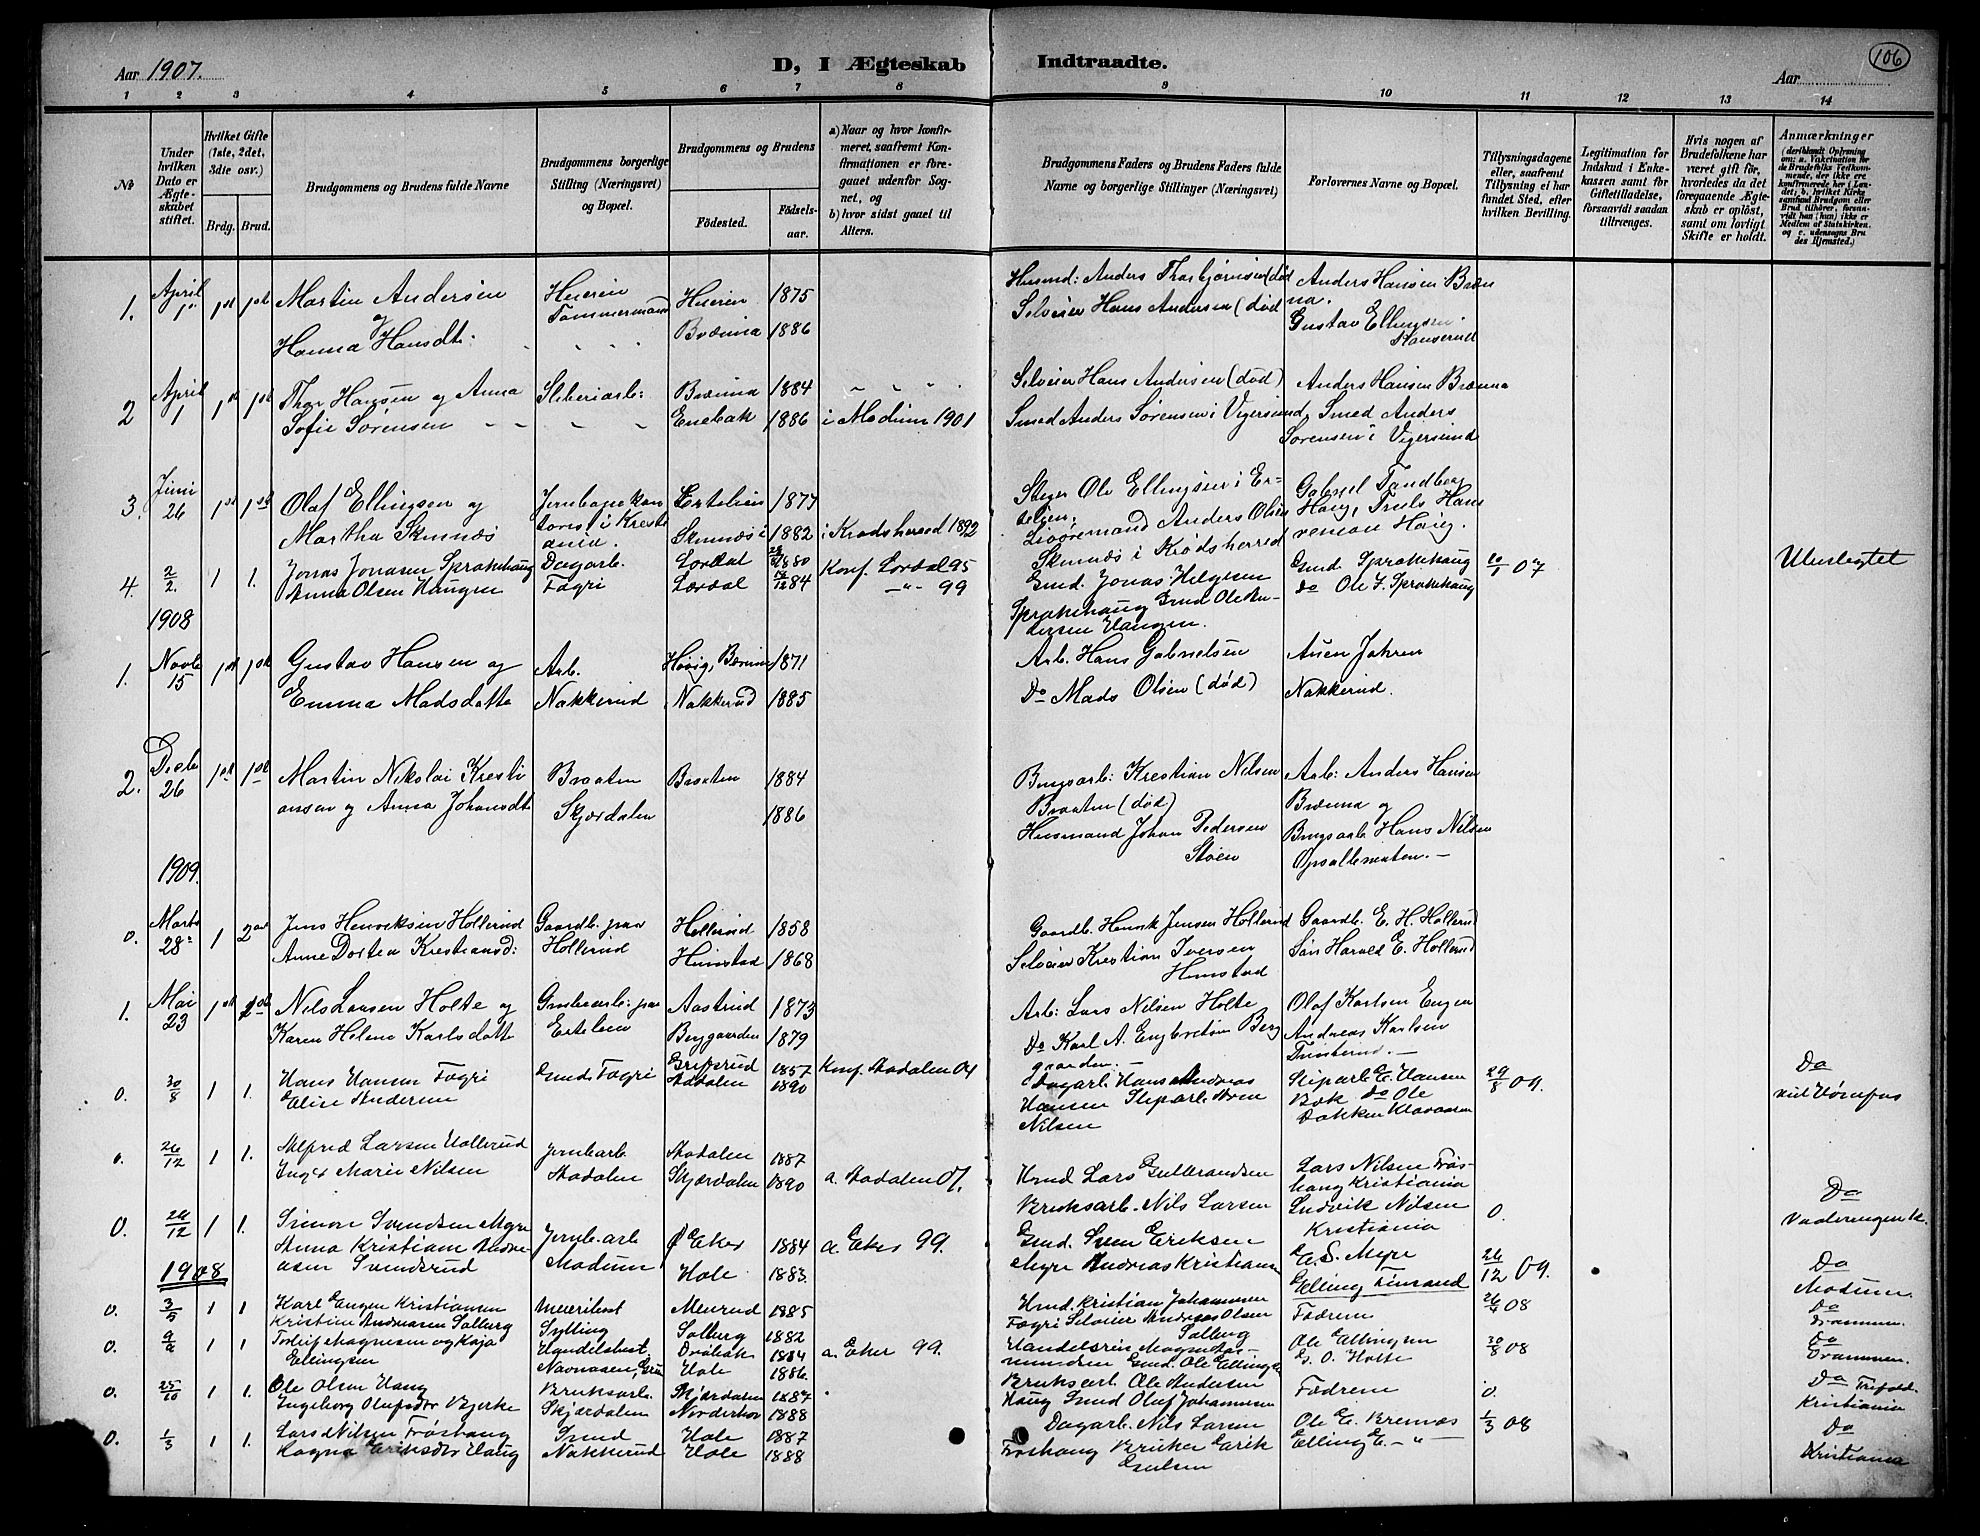 Aar 1907.
D, I Ægteskab Indtraadte.
106
Aar
1 2 3 4 5 6 7 8 9 10 11 12 13 14
No
Under hvilken Dato er Ægteskabet stiftet.
Hvilket Gifte (1ste, 2det, 3die osv.)
Brdg. Brud.
Brudgommens og Brudens fulde Navne
Brudgommens borgerlige Stilling (Næringsvei) og Bopæl.
Brudgommens og Brudens
Födested.
Födsels-aar.
a) Naar og hvor konfirmeret, saafremt Konfirmationen er foregaaet udenfor Sognet, og
b) hvor sidst gaaet til Alters.
Brudgommens Faders og Brudens Faders fulde Navne og borgerlige Stillinger (Næringsvei)
Forlovernes Navne og Bopæl.
Tillysningsdagene eller, saafremt Tillysning ei har fundet Sted, efter hvilken Bevilling.
Legitimation for Indskud i Enkekassen samt for Giftetilladelse, forsaavidt saadan tiltrænges.
Hvis nogen af Brudefolkene har været gift før, hvorledes da det foregaaende Ægteskab er opløst, samt om lovligt Skifte er holdt.
Anmærkninger
1. April 1 1st 1st Martin Andersen Hurien Hurien 1875 Husmd: Anders Thorbjørnsen (død Anders Hansen Bræn
og Tømmermand Selveier Hans Andersen (død na.
Hanna Hansdt. Brænna 1886 Gustav Ellingsen
2 April 1 1st 1st Thor Hansen og Anna Sliberiarb: Brænna 1884 Selveier Hans Andersen (død) Anders Hansen Brænna
Sofie Sørensen Enebak 1886 i Modum 1901 Smed Anders Sørensen i Vigersund, Smed Anders
Sørensen i Vigersund
3. Juni 26 1st 1st Olaf Ellingsen og Jernbanekon Ertelien 1877 Steiger Ole Ellingsen i Er- Gabriel Tandberg
telien. Haug, Truls Hans
Martha Skinnæs torist i Kristi ania. Skinnæs i 1882 i Krødsherred 1892 Anders Olsen
Skinnæs i Krødsherred
4. 2/2. 1 1. Jonas Jonasen Sprakehaug Dagarb. Lordal 1880 Konf. Lordal 95 Gmd. Jonas Helgesen Gmd Sprakehaug 20/1 07 Uteslegtet
Anna Olsen Haugen Fagri Lordal 84 —"— 99 Sprakehaug Gmd Ole An- do Ole J. Sprakehaug
dersen Haugen.
1908
1. Novb 15 1st 1st Gustav Hansen og Arb. Høvig, Bærum 1871 Arb. Hans Gabrielsen Auen Jahren
Emma Madsdatte Nakkerud Nakkerud 1885 Do Mads Olsen (død) Nakkerud.
2. Decb 26 1st 1st Martin Nikolai Kristi Braaten Braaten 1884 Brugsarb: Krestian Nilsen Arb: Anders Hansen
ansen og Anna Johansdt Skjærdalen 1886 Braaten (død) Brænna og
Husmand Johan Pedersen Brugsarb Hans Nilsen
Støen Opsaleneaten.—
1909.
0. Marts 28 1 2den Jens Henriksen Hollerud Gaardb. paa Hollerud 1858 Gaardb. Henrik Jensen Hollerud Gaardb. E. H. Hollerud
Anne Dortea Kristiansd: Hollerud Himstad 1868 Selveier Krestian Iversen Søn Harald E. Hollerud
Himstad
1. Mai 23 1st 1st Nils Larsen Holte og Grubearb: paa Aastrud 1873 Arb: Lars Nilsen Holte Olaf Karlsen Engen
Karen Helene Karlsdatte Ertelien Berggaarden 1879 Do Karl A. Engebretsen Berg Andreas Karlsen
gaarden.—
0. 30/8 1 1. Hans Hansen Fagri Gmd. Fagri Gripsrud 1857 Konf. Aadalen 04 Dagarb. Hans Andreas Sliparb. E. Hansen 29/8 09. Do
Elise Andersen Aadalen 1890 Hansen Sliparb. Aren Bæk do Ole ved Hønefos
Nilsen Dokken Klavaasen
0. 26/12 1 1. Alfred Larsen Hollerud Jernbarb Aadalen 1887 Hmd Lars Gulbrandsen Lars Nilsen Frøs-
Inga Marie Nilsen Aadalen Skjærdalen 1890 a. Aadalen 07. Bruksarb. Nils Larsen haug Kristiania
Ludvik Nilsen 0. Do Vaalerengen k.
Kristiania
0. 26/12 1 1. Simon Svendsen Myre Jernb. arb Ø Eker 1884 a. Eker 99. Gmd. Sven Eriksen E. S. Myre 26/12 09. Do
Anna Kristiane Andre- Modum Hole 1883. Myre Andreas Kristiansen Elling Finsand Modum.
asen Svendsrud
1908
0. 3/5 1 1 Karl Eugen Kristiansen Meieribest Meurud 1885 Hmd. Kristian Johannesen Fædrene 26/4 08 Do
Kristine Andreasen Solberg Sylling Solberg 1882 Fagri Selveier Andreas Olsen Drammen.
Solberg
0. Torleif Magnesen og Kaja Handelsbest. Drøbak 1884 a. Eker 99. Handelsrei. Ole Ellingsen 30/8 08 Do
Ellingsen Hole 1886 Gmd. Ole Ellingsen G. O. Holte Drammen.
0. 25/10 1 1. Ole Olsen Haug Bruksarb. Skjærdalen 1887 Bruksarb. Ole Andersen Fædrene 0. Do Trefold.
Ingeborg Olufsdtr Bjerke Skjærdalen Norderhov 1888 Haug Gmd Oluf Johannesen Kristiania
0. 1/3 1 1. Lars Nilsen Frøshaug Smed Hole 1887 Dagarb. Nils Larsen Ole E. Bremnes 1/3 08 Do
Ragna Eriksdtr Haug Nakkerud Hole 1888 Frøshaug Bruker Erik Elling E. — " — Kristiania